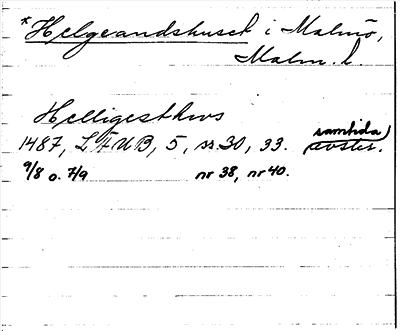 * Helgeandshuset i Malmö,
Malm. l.
Helligesthws
1487, LFUB, 5, nr. 30, 33. samtida avskr.
9/8 o. 7/9 nr 38, nr 40.